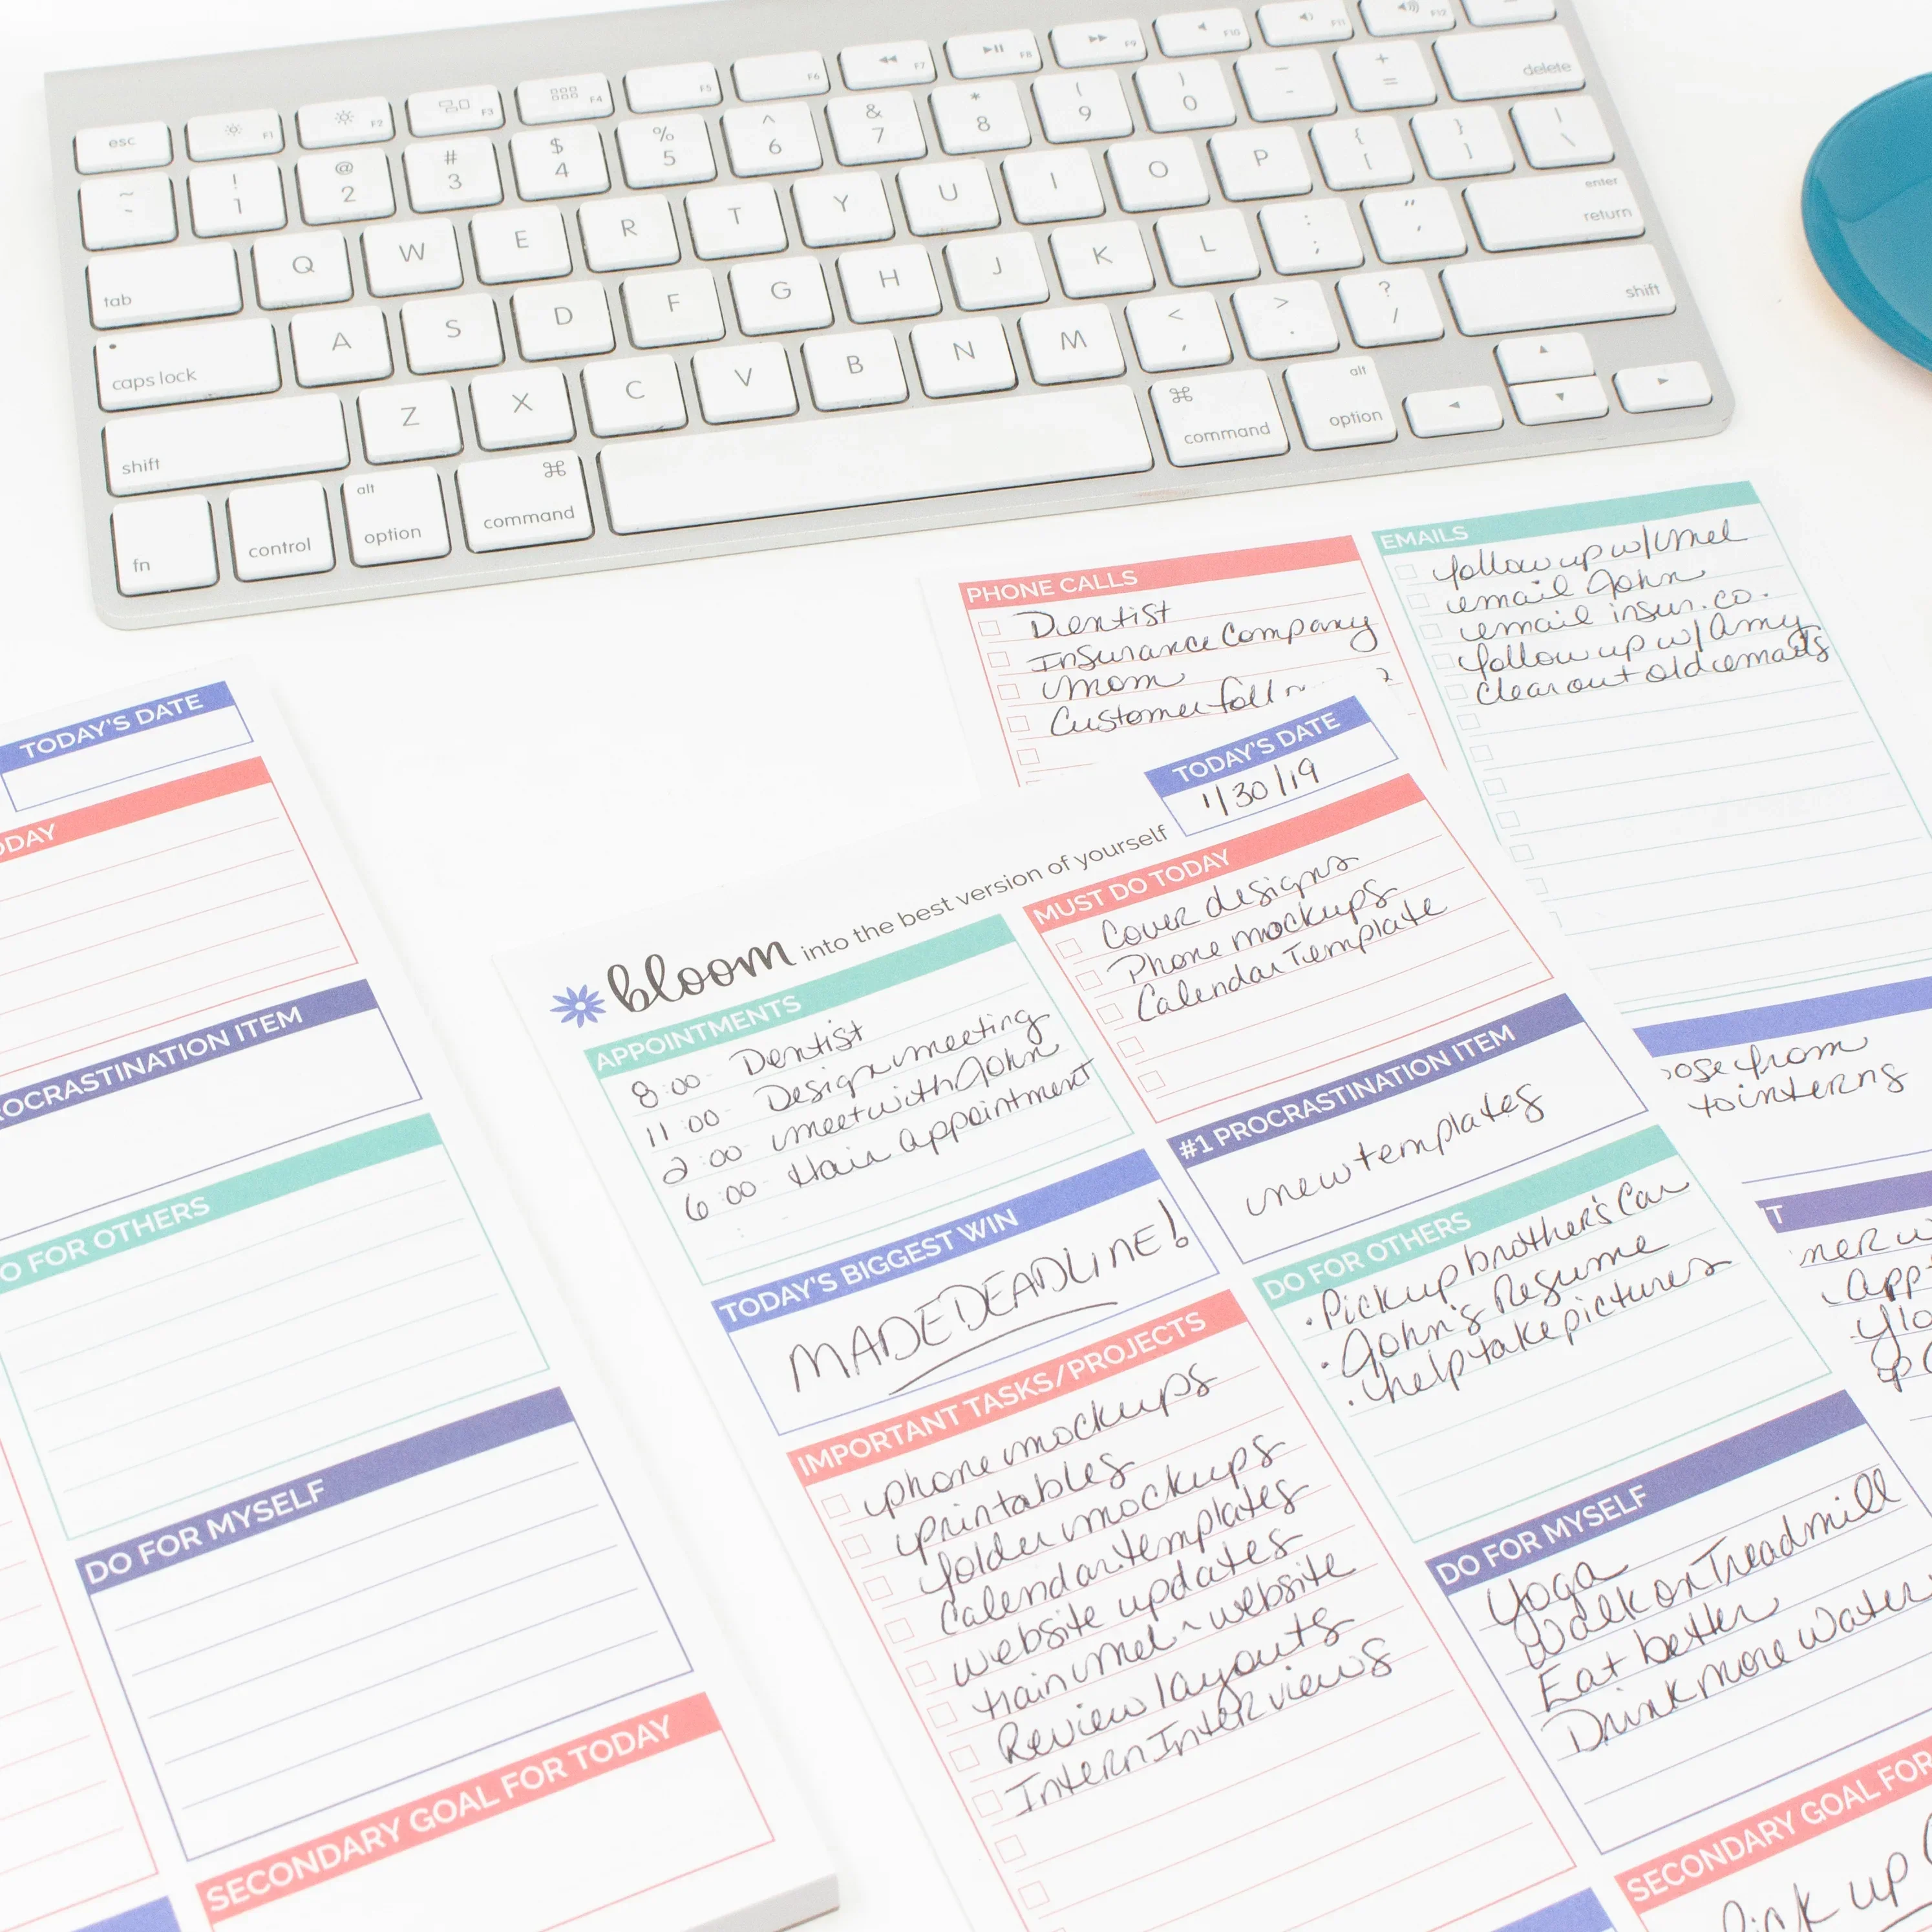 esc F1 F2 F3 F4 F5 F6 F7 F8 F9 F10 F11 F12
~ ! @ # $ % ^ & * ( ) _ +
` 1 2 3 4 5 6 7 8 9 0 - = delete
tab Q W E R T Y U I O P { [ } ] | \
caps lock A S D F G H J K L : ; " ' enter return
shift Z X C V B N M < , > . ? / shift
fn control alt option command command alt option
PHONE CALLS
Dentist
Insurance Company
Mom
Customer
EMAILS
follow up w/ Mel
email John
email insur. co.
follow up w/ Amy
clear out old emails
TODAY'S DATE
ODAY
OCRASTINATION ITEM
O FOR OTHERS
DO FOR MYSELF
SECONDARY GOAL FOR TODAY
TODAY'S DATE
1/30/19
bloom into the best version of yourself
APPOINTMENTS
8:00 - Dentist
11:00 - Design meeting
2:00 - meet with John
6:00 - Hair appointment
TODAY'S BIGGEST WIN
MADE DEADLINE!
IMPORTANT TASKS/PROJECTS
phone mockups
printables
folder mockups
Calendar templates
website updates
train mel ~ website
Review layouts
Intern Interviews
MUST DO TODAY
Cover designs
Phone mockups
Calendar Template
#1 PROCRASTINATION ITEM
new templates
DO FOR OTHERS
• Pick up brother's Car
• John's Resume
• help take pictures
DO FOR MYSELF
Yoga
Walk on Treadmill
Eat better
Drink more water
SECONDARY GOAL FOR
Pick up
ose from
to interns
T
ner w
app